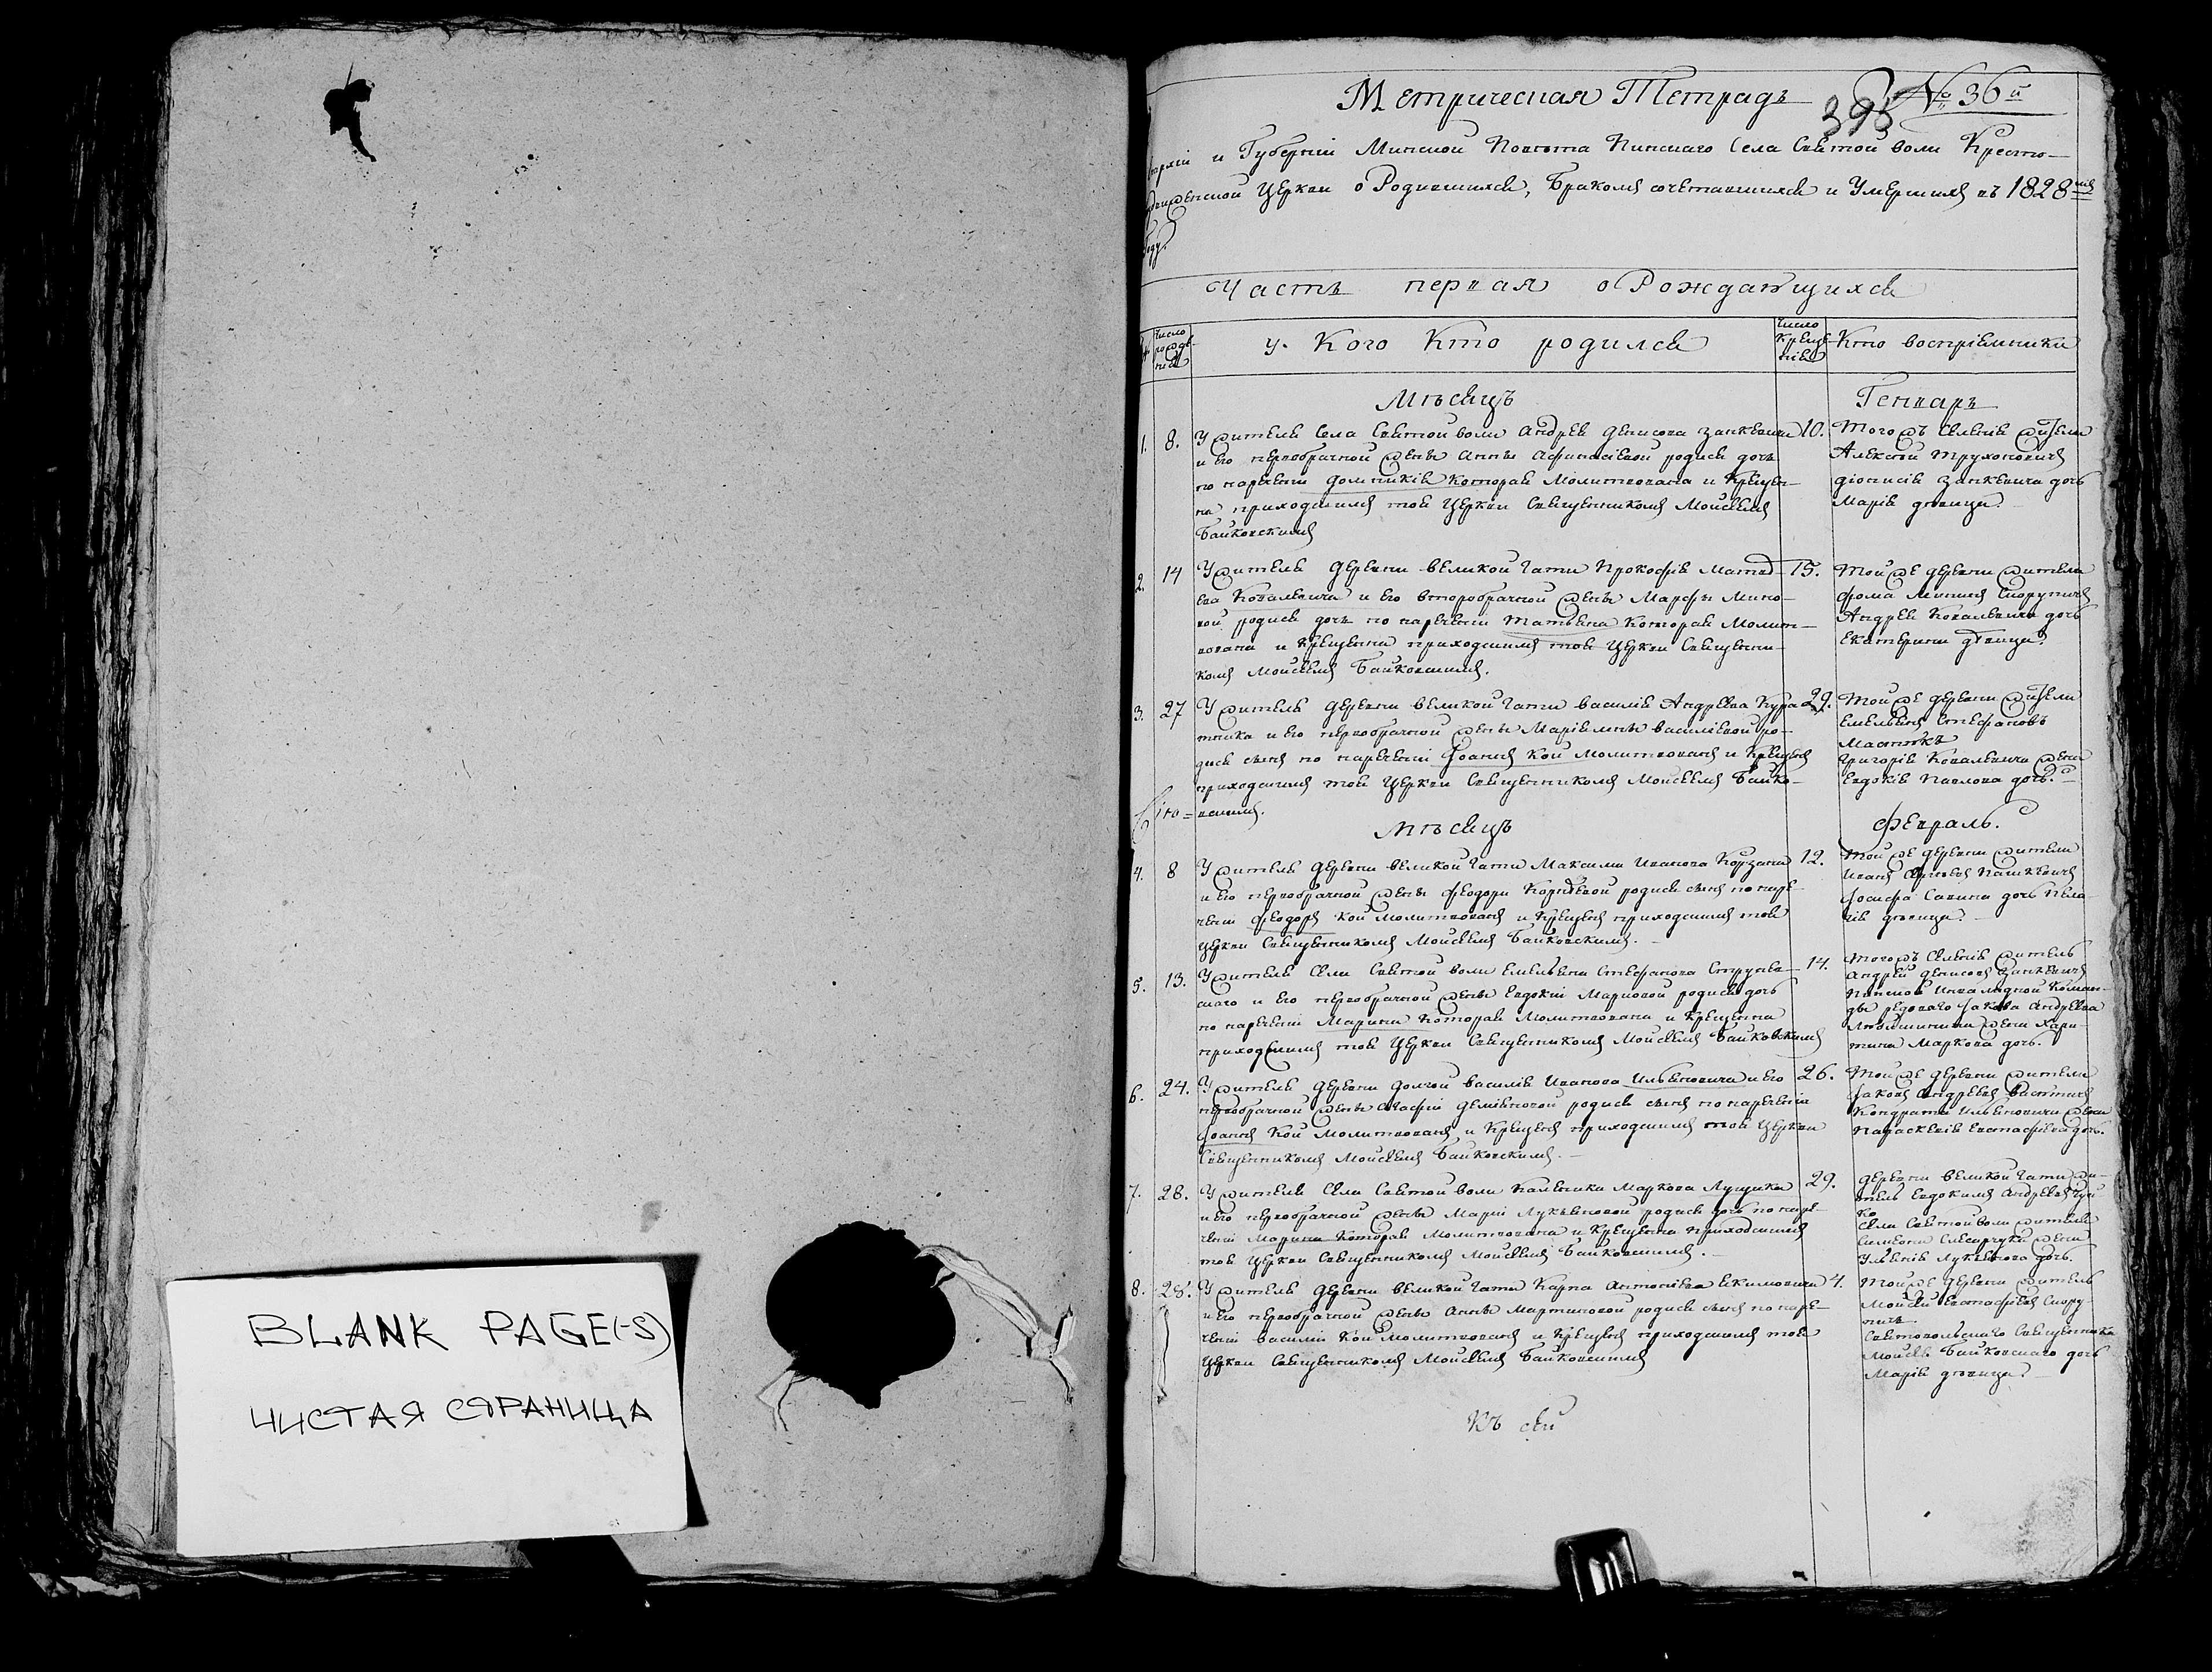 BLANK PAGE(-S)
ЧИСТАЯ СТРАНИЦА
Метрическая Тетрадь № 36й
395
и Губерніи Минской Повѣта Пинскаго Села Святой воли Кресто-
Церкви о Родившихся, Бракомъ сочетавшихся и Умершихъ въ 1828мъ
Году.
Часть первая о Рождающихся
Число рожде-нія
у Кого Кто родился
Число Креще-нія
Кто воспріемники
Мѣсяцъ Генварь
1. 8. У жителя Села Святой воли Андрея Денисова Занкевича
и его первобрачной жены Анны Афанасіевой родися дочь
по нареченіи домникія которая Молитвована и Креще-
на приходскимъ тоя Церкви Священникомъ Мойсеемъ
Байковскимъ
10. Того жъ Селенія жители
Алексѣй Трухоновичъ
діонисія Занкевича дочь
Марія дѣвица.
2. 14 У жителя деревни великой Гати Прокофія Матѳе-
ева Ковалевича и его второбрачной жены Марфы Мино-
вой родися дочь по нареченіи Татьяна которая Молит-
вована и Крещенна приходскимъ тоя Церкви Священни-
комъ Мойсеемъ Байковскимъ.
15. Той же деревни жители
Фома Мининъ Скорупичъ
Андрея Ковалевича дочь
Екатерина дѣвица
3. 27 У жителя деревни великой Гати василія Андреева Кура-
тника и его первобрачной жены Маріямны василіевой ро-
дися сынъ по нареченіи Іоаннъ кой молитвованъ и Крещенъ
приходскимъ тоя Церкви Священникомъ Мойсеемъ Байко-
вскимъ.
29. Той же деревни жители
Емельянъ Стефановъ
Григорія Ковалевича жена
Евдокія Павлова дочь.
Мѣсяцъ Февраль.
4. 8 У жителя деревни великой Гати Максима Иванова Корзана
и его первобрачной жены Феодоры Корнѣевой родися сынъ по наре-
ченіи Феодоръ кой молитвованъ и Крещенъ приходскимъ тоя
Церкви Священникомъ Мойсеемъ Байковскимъ.
12. Той же деревни жители
Иванъ Пашкевичъ
Іосифа Савина дочь Пела-
гія дѣвица.
5. 13. У жителя Села Святой воли Емельяна Стефанова
и его первобрачной жены Евдокіи Марковой родися дочь
по нареченіи Марина которая Молитвована и Крещенна
приходскимъ тоя Церкви Священникомъ Мойсеемъ Байковскимъ
14. Того жъ Селенія житель
Андрей Денисовъ Занкевичъ
Пинской Инвалидной Коман-
ды редоваго Іакова Андреева
жена Хари-
тина Маркова дочь.
6. 24. У жителя деревни Долгой василія Иванова Ильяновича и его
первобрачной жены Агафіи Демяновой родися сынъ по нареченіи
Іоаннъ кой Молитвованъ и Крещенъ приходскимъ тоя Церкви
Священникомъ Мойсеемъ Байковскимъ.
26. Той же деревни жители
Іаковъ Андреевъ
Кондрата Ильяновича жена
Параскевія Евстафіева дочь.
7. 28. У жителя Села Святой воли Каленика Маркова Лущика
и его первобрачной жены Маріи Лукьяновой родися дочь по наре-
ченіи Марина которая Молитвована и Крещенна приходскимъ
тоя Церкви Священникомъ Мойсеемъ Байковскимъ.
29. деревни великой Гати жи-
тель Евдокимъ Андреевъ
Села Святой воли жителя
Симеона Слесарчука жена
Ульянія Лукьянова дочь.
8. 28. У жителя деревни великой Гати Карпа Антоніева Екимовича
и его первобрачной жены Анны Мартиновой родися сынъ по наре-
ченіи василій кой молитвованъ и Крещенъ приходскимъ тоя
Церкви Священникомъ Мойсеемъ Байковскимъ
4. Той же деревни житель
Мойсей Евстафіевъ Скору-
пичъ
Святовольскаго Священника
Мойсея Байковскаго дочь
Марія дѣвица.
Къ сей